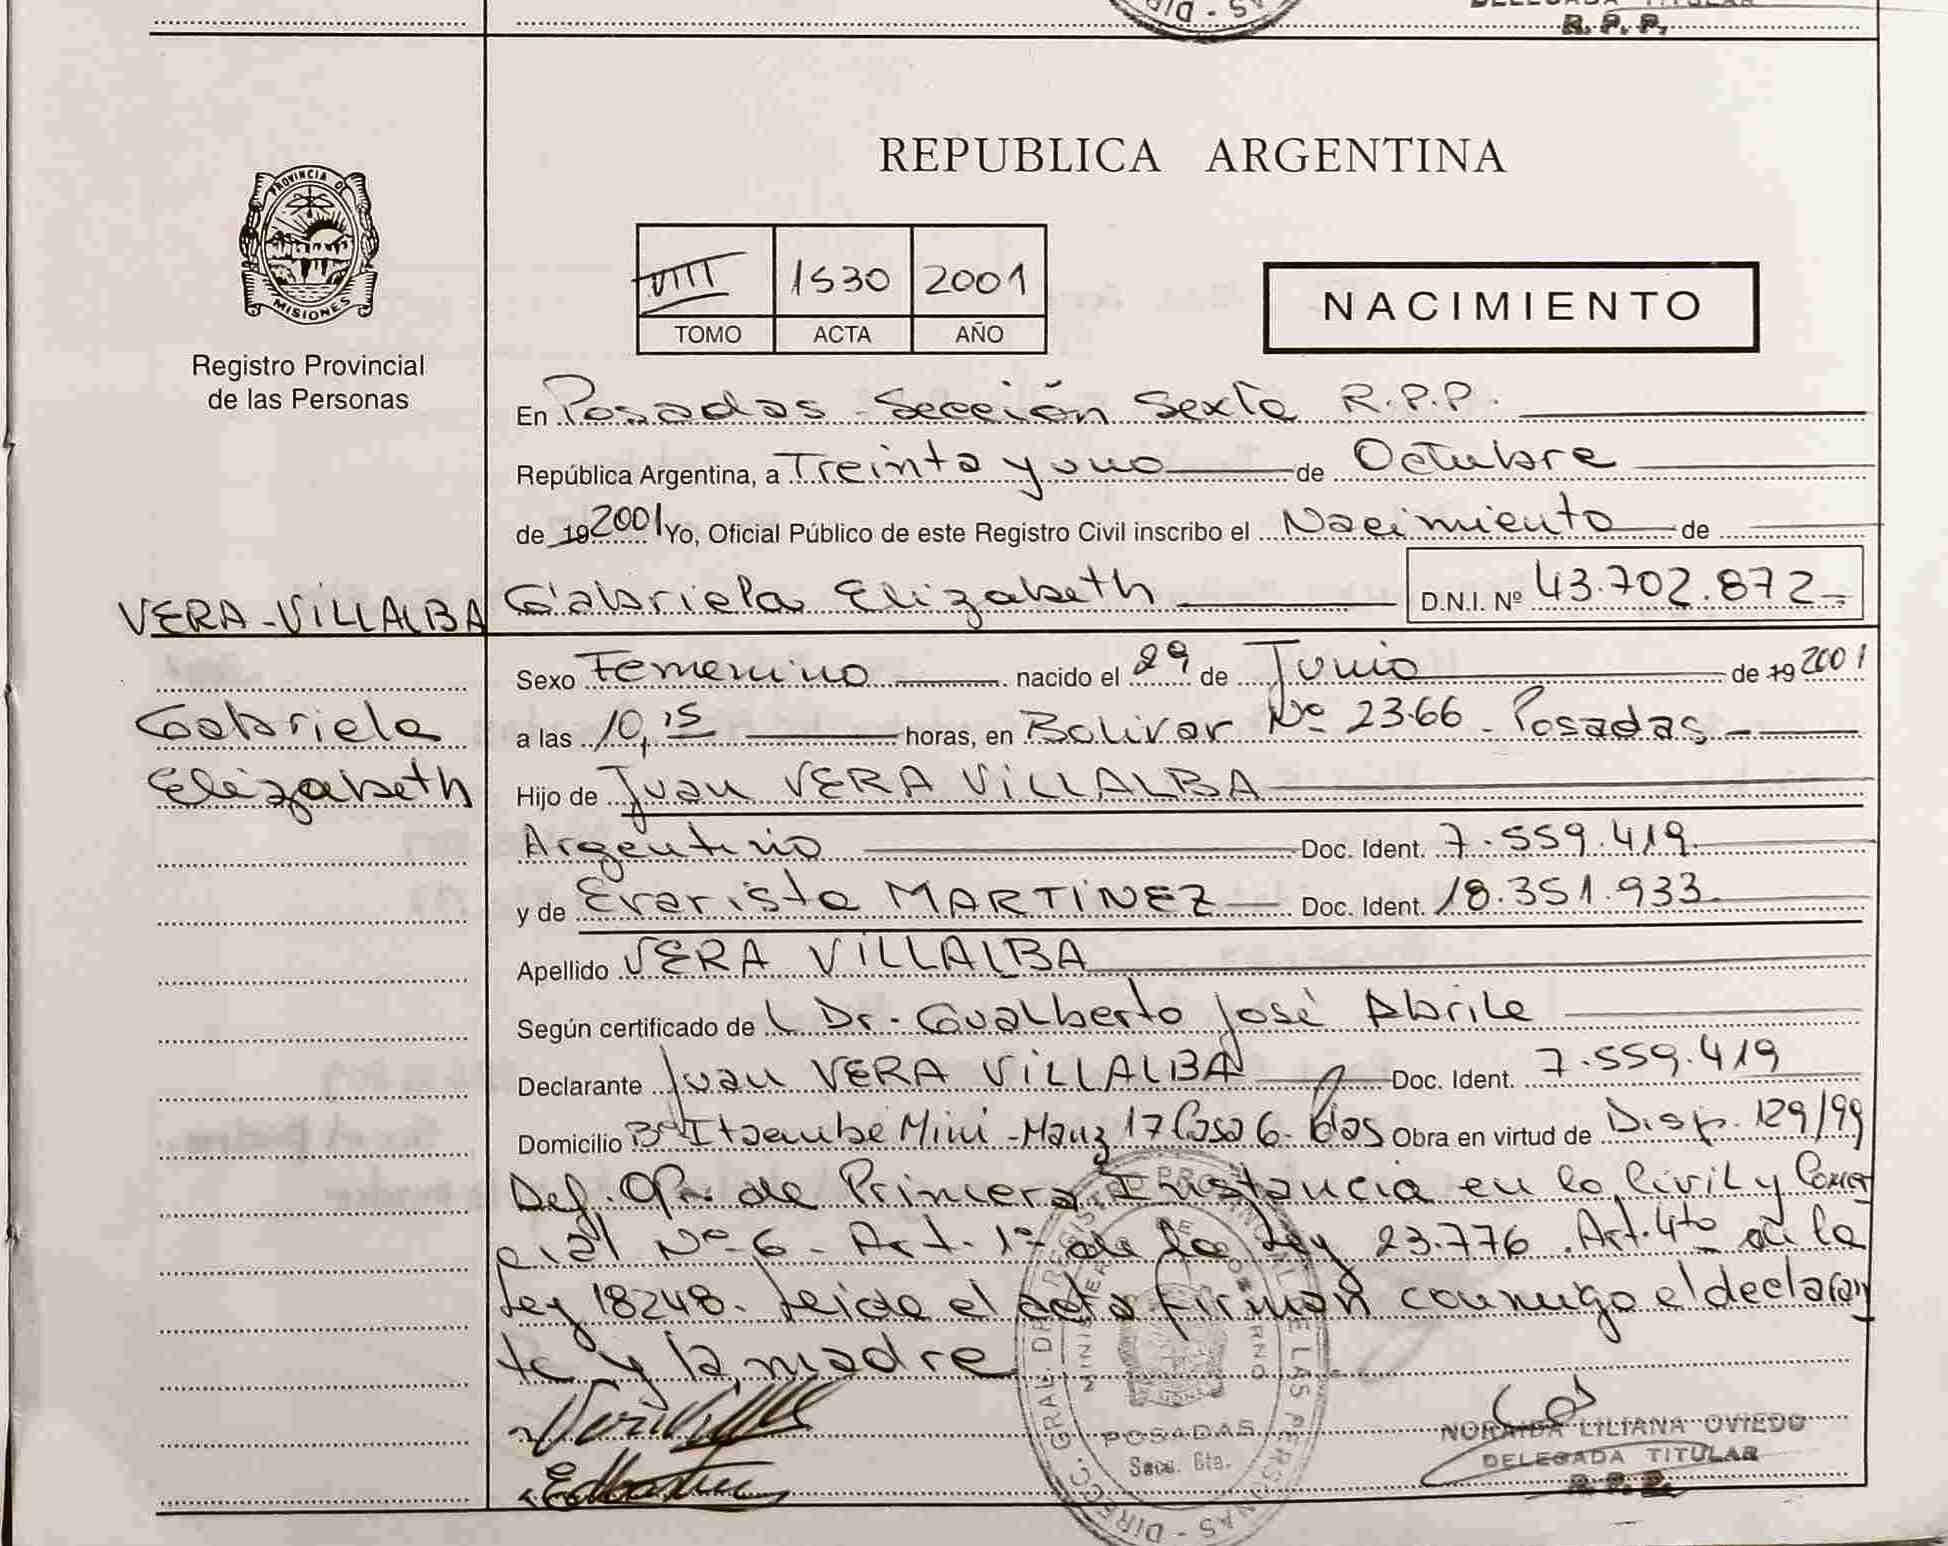 DELEGADA TITULAR
R. P. P.
PROVINCIA DE
MISIONES
Registro Provincial
de las Personas
REPUBLICA ARGENTINA
VIII 1530 2001
TOMO ACTA AÑO
NACIMIENTO
En Posadas - Sección Sexta R.P.P.
República Argentina, a Treinta y uno de Octubre
de 19 2001 Yo, Oficial Público de este Registro Civil inscribo el Nacimiento de
VERA-VILLALBA Gabriela Elizabeth D.N.I. Nº 43.702.872-
Sexo Femenino nacido el 29 de Junio de 19 2001
Gabriela
a las 10,15 horas, en Bolivar Nº 2366 - Posadas -
Elizabeth
Hijo de Juan VERA VILLALBA
Argentino Doc. Ident. 7.559.419.
y de Evarista MARTINEZ Doc. Ident. 18.351.933.
Apellido VERA VILLALBA
Según certificado de L Dr. Gualberto José Abrile
Declarante Juan VERA VILLALBA Doc. Ident. 7.559.419
Domicilio Bº Itaembé Mini - Manz 17 Casa 6 - Pdas Obra en virtud de Disp. 129/99
Def. Of. de Primera Instancia en lo Civil y Comer
cial Nº 6 - Art. 1º de la Ley 23.776. Art. 4to de la
Ley 18248. Leida el acta firman conmigo el declaran
te y la madre
DIRECC. GRAL. DE REGISTRO PROVINCIAL DE LAS PERSONAS
MINISTERIO DE GOBIERNO
POSADAS
Secc. 6ta.
NORAIDA LILIANA OVIEDO
DELEGADA TITULAR
R. P. P.